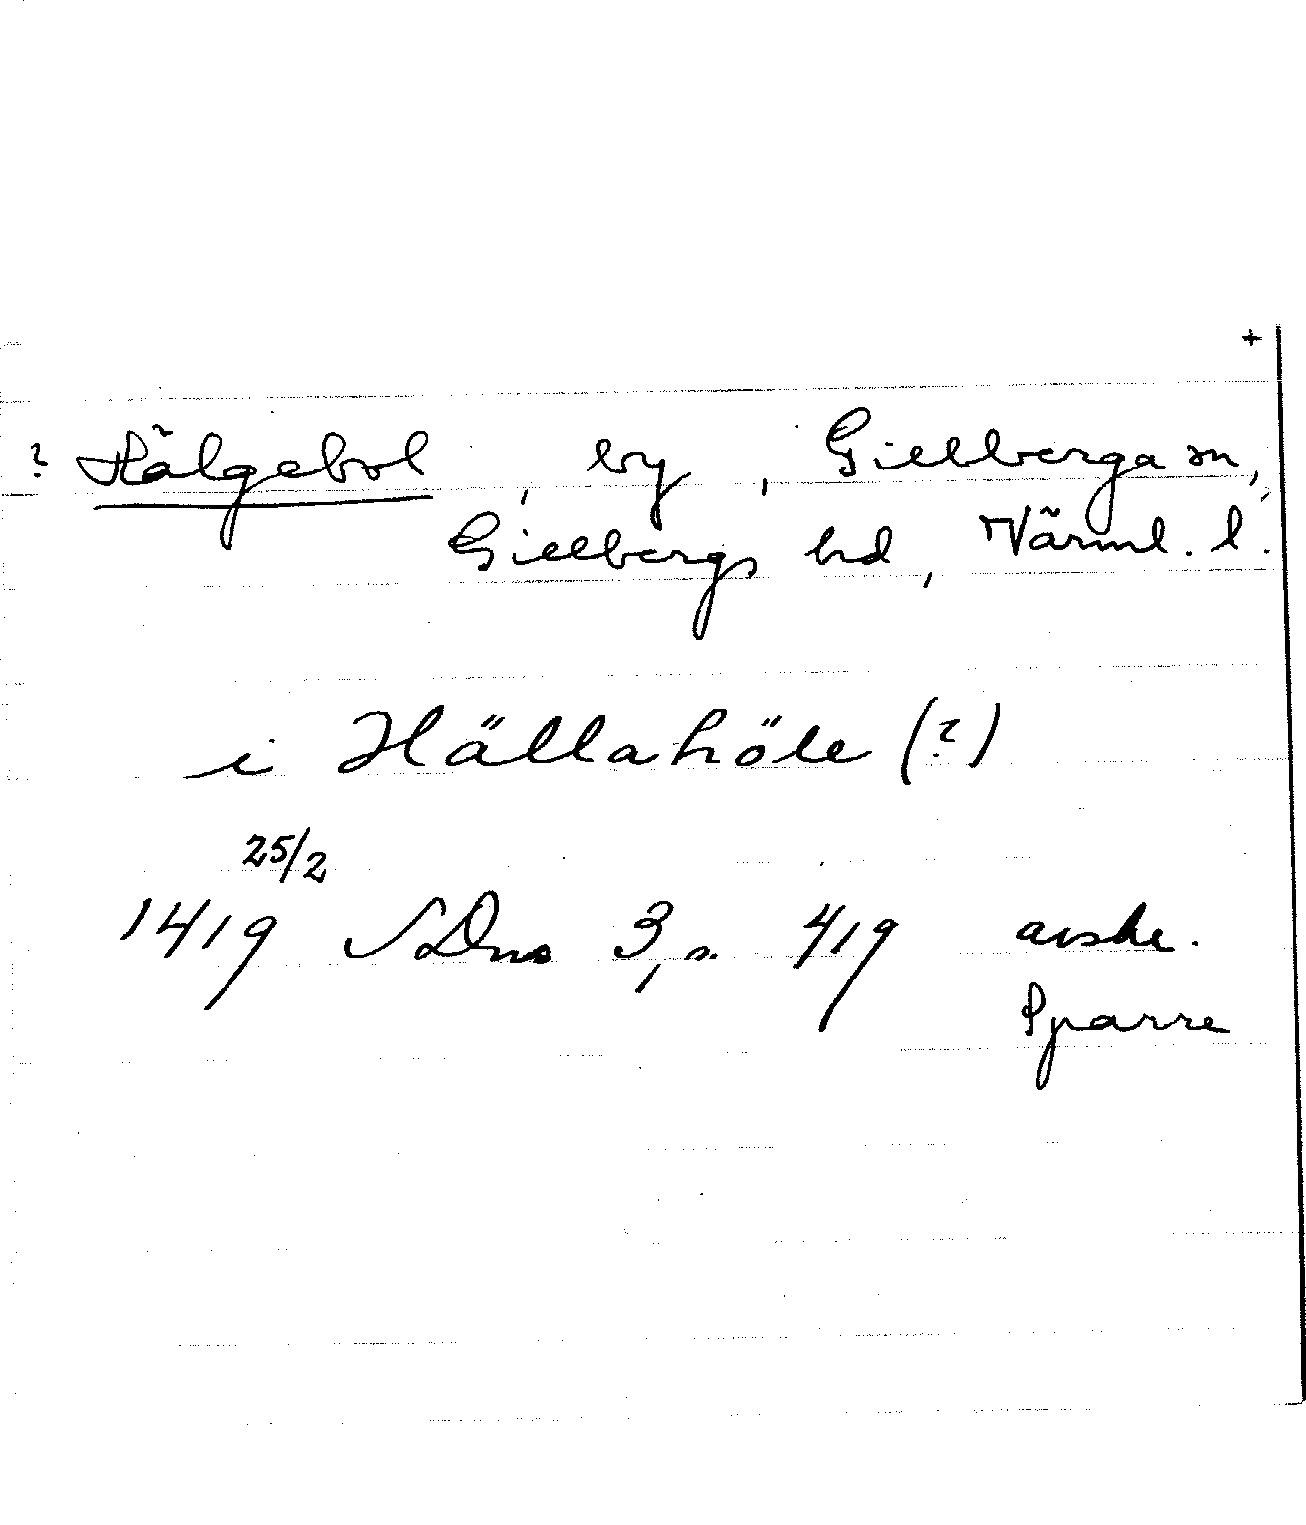 +
? Hälgebol, by, Gillberga sn,
Gillbergs hd, Värml. l.
i Hällahöle (?)
25/2
1419 SDns 3, s. 419 avskr.
Sparre